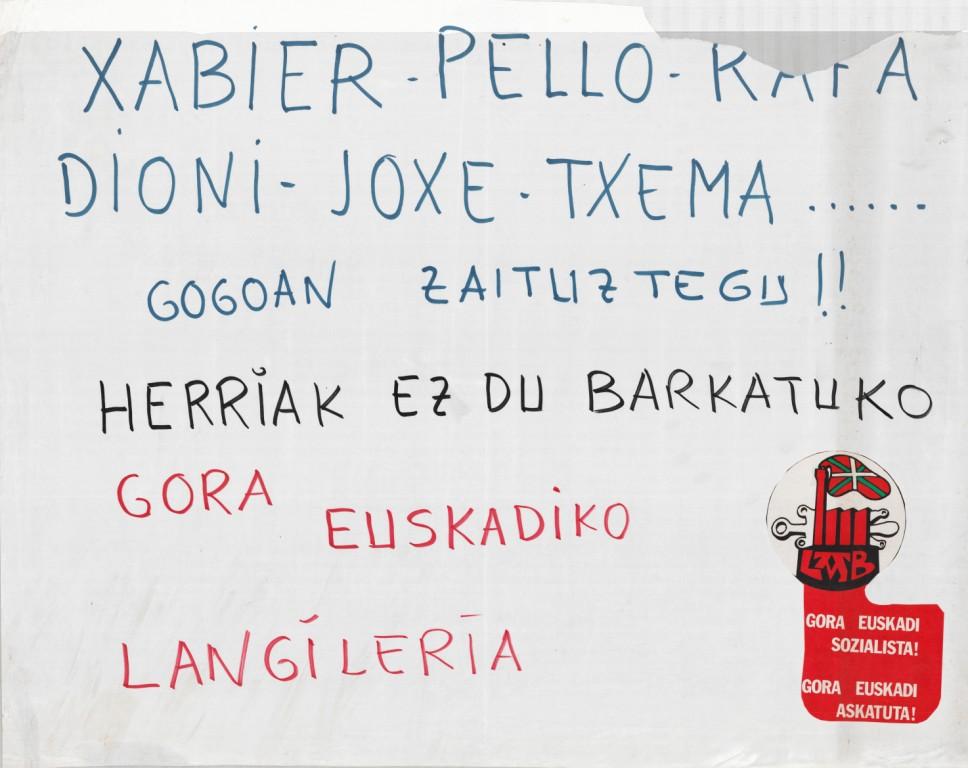 XABIER - PELLO - RAFA
DIONI - JOXE - TXEMA ......
GOGOAN ZAITUZTEGU !!
HERRIAK EZ DU BARKATUKO
GORA
EUSKADIKO
LANGILERIA
LAB
GORA EUSKADI
SOZIALISTA!
GORA EUSKADI
ASKATUTA!